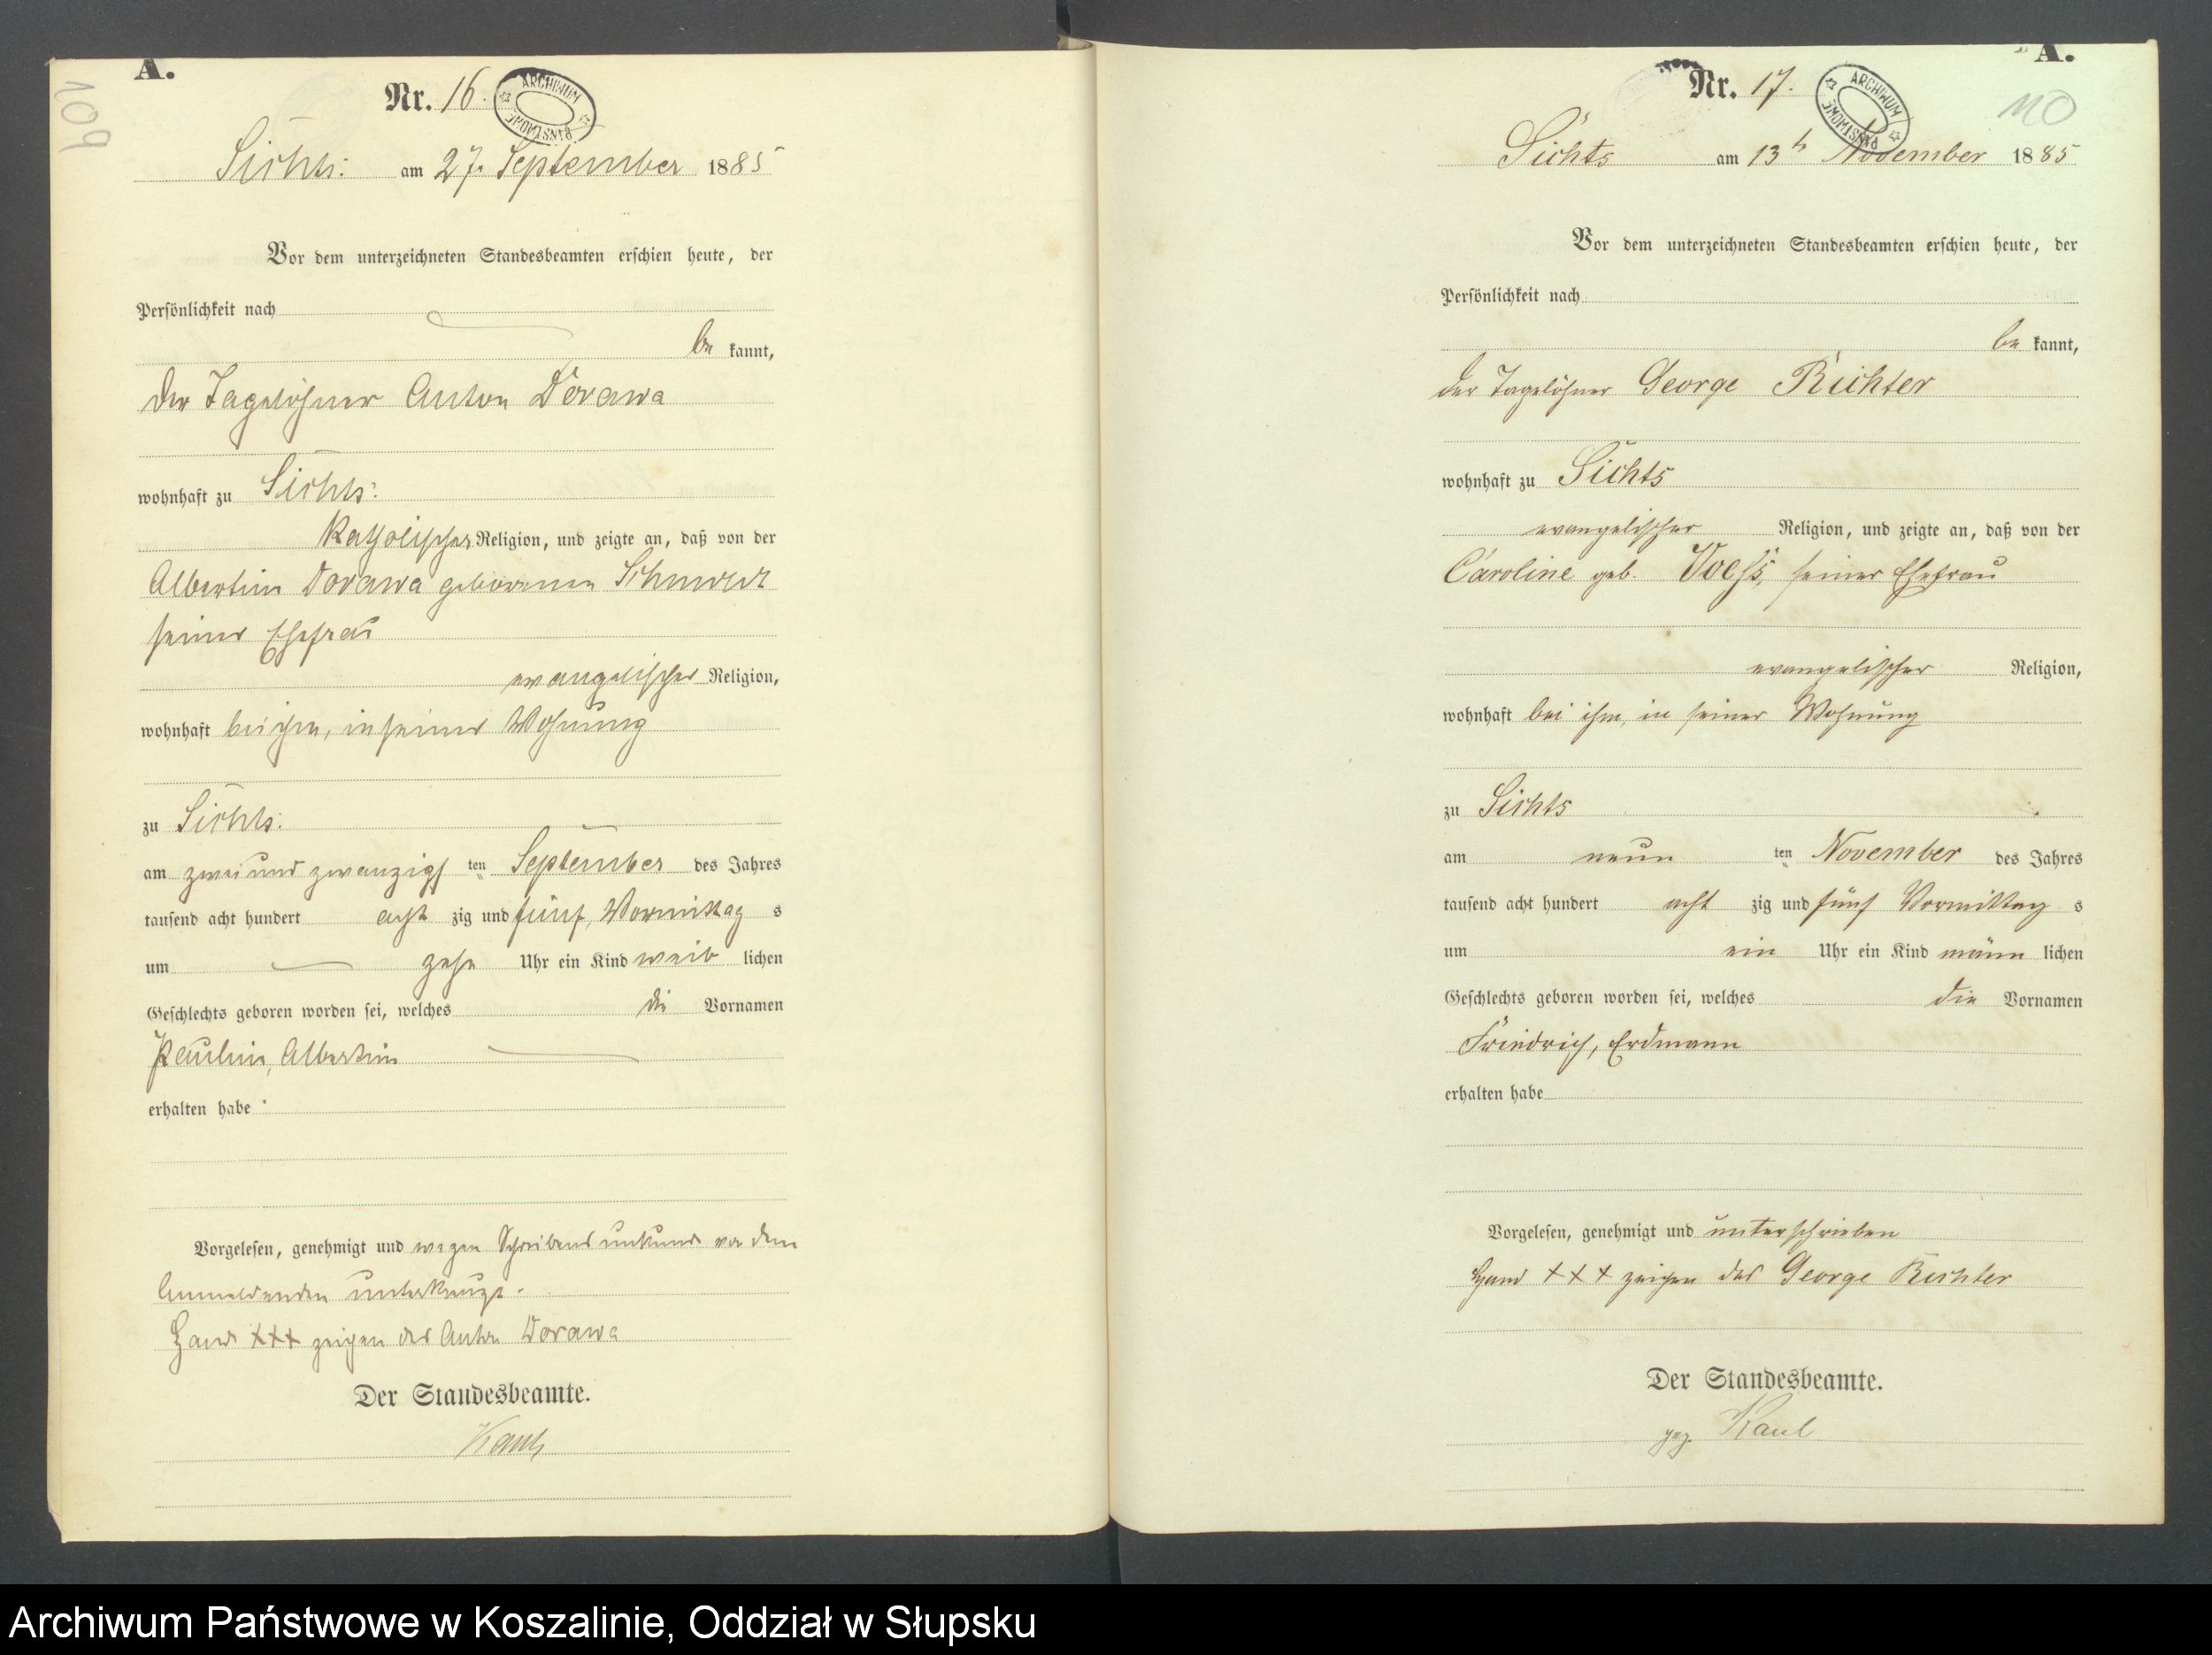 109
A.
Nr. 16.
ARCHIWUM PAŃSTWOWE
Sichts: am 27. September 1885
Vor dem unterzeichneten Standesbeamten erschien heute, der
Persönlichkeit nach
be kannt,
der Tagelöhner Anton Dorawa
wohnhaft zu Sichts:
katholischer Religion, und zeigte an, daß von der
Albertine Dorawa geborenen
seiner Ehefrau
evangelischer Religion,
wohnhaft bei ihm, in seiner Wohnung
zu Sichts:
am zwei und zwanzigsten September des Jahres
tausend acht hundert acht zig und fünf, Vormittag s
um zehn Uhr ein Kind weib lichen
Geschlechts geboren worden sei, welches die Vornamen
Pauline, Albertine
erhalten habe
Vorgelesen, genehmigt und wegen Schreibens unkunde von dem
Anmeldenden unterkreuzt.
Hand +++ zeigen des Anton Dorawa
Der Standesbeamte.
Kaul
A.
110
Nr. 17.
ARCHIWUM PAŃSTWOWE
Sichts am 13t November 1885
Vor dem unterzeichneten Standesbeamten erschien heute, der
Persönlichkeit nach
be kannt,
der Tagelöhner George Richter
wohnhaft zu Sichts
evangelischer Religion, und zeigte an, daß von der
Caroline geb. Voess, seiner Ehefrau
evangelischer Religion,
wohnhaft bei ihm, in seiner Wohnung
zu Sichts
am neun ten November des Jahres
tausend acht hundert acht zig und fünf Vormittag s
um ein Uhr ein Kind männ lichen
Geschlechts geboren worden sei, welches die Vornamen
Friedrich, Erdmann
erhalten habe
Vorgelesen, genehmigt und unterschrieben
Hand +++ zeigen des George Richter
Der Standesbeamte.
gez. Kaul
Archiwum Państwowe w Koszalinie, Oddział w Słupsku